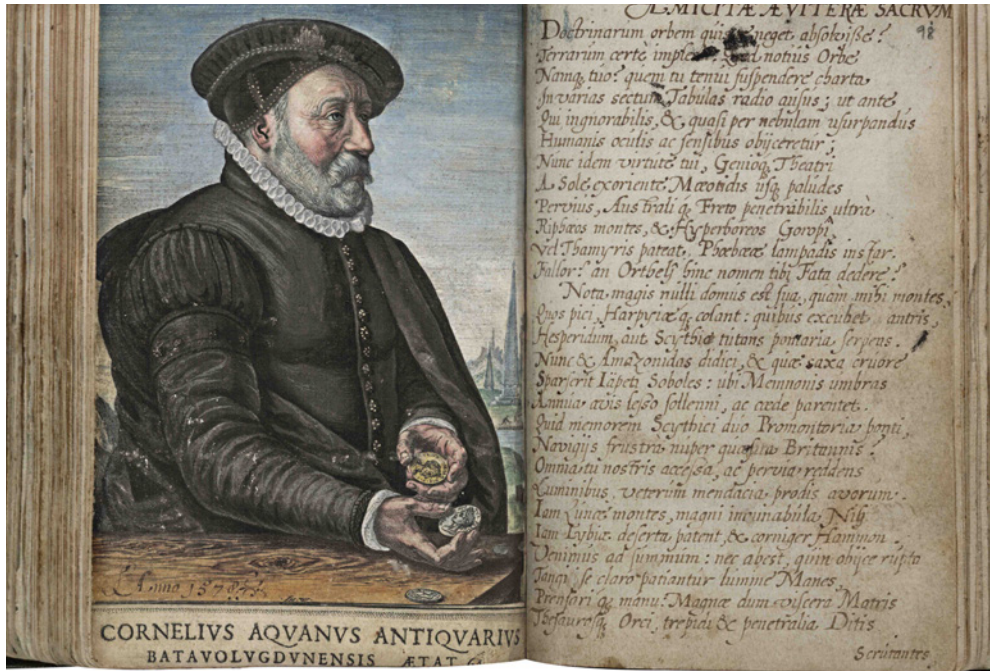 Anno 1578.
CORNELIVS AQVANVS ANTIQVARIVS
BATAVOLVGDVNENSIS ÆTAT
AMICITIÆ ÆVITERÆ SACRVM
98
Doctrinarum orbem quis neget absolvisse?
Terrarum certe imples. Quid notius Orbe
Namq, tuo? quem tu tenui suspendere charta
In varias sectum Tabulas radio ausus; ut ante
Qui ingnorabilis, & quasi per nebulam usurpandus
Humanis oculis ac sensibus obijceretur;
Nunc idem virtute tui, Genioq, Theatri
A Sole exoriente Mæotidis usq, paludes
Pervius, Australi q, Freto penetrabilis ultra
Riphæos montes, & Hyperboreos Goropî
Vel Thamyris pateat, Phœbeæ lampadis instar.
Fallor? an Ortheli hinc nomen tibi Fata dedere?
Nota magis nulli domus est sua, quam mihi montes,
Quos pici, Harpyiæ q, colant: quibus excubet antris,
Hesperidum, aut Scythiæ tutans pomaria serpens.
Nunc & Amazonidas didici, & quæ saxa cruore
Sparserit Iapeti Soboles: ubi Memnonis umbras
Annua avis lesso sollenni, ac cæde parentet.
Quid memorem Scythici duo Promontoria ponti,
Navigijs frustra nuper quæsita Britannis?
Omnia tu nostris accessa, ac pervia reddens
Luminibus, veterum mendacia prodis avorum.
Iam Lunæ montes, magni incunabula Nili,
Iam Lybiæ deserta patent, & corniger Hammon.
Venimus ad summum: nec abest, quin obijce rupto
Tangi se claro patiantur lumine Manes,
Prensari q, manu: Magnæ dum viscera Matris
Thesaurosq, Orci, trepidi & penetralia Ditis
Scrutantes